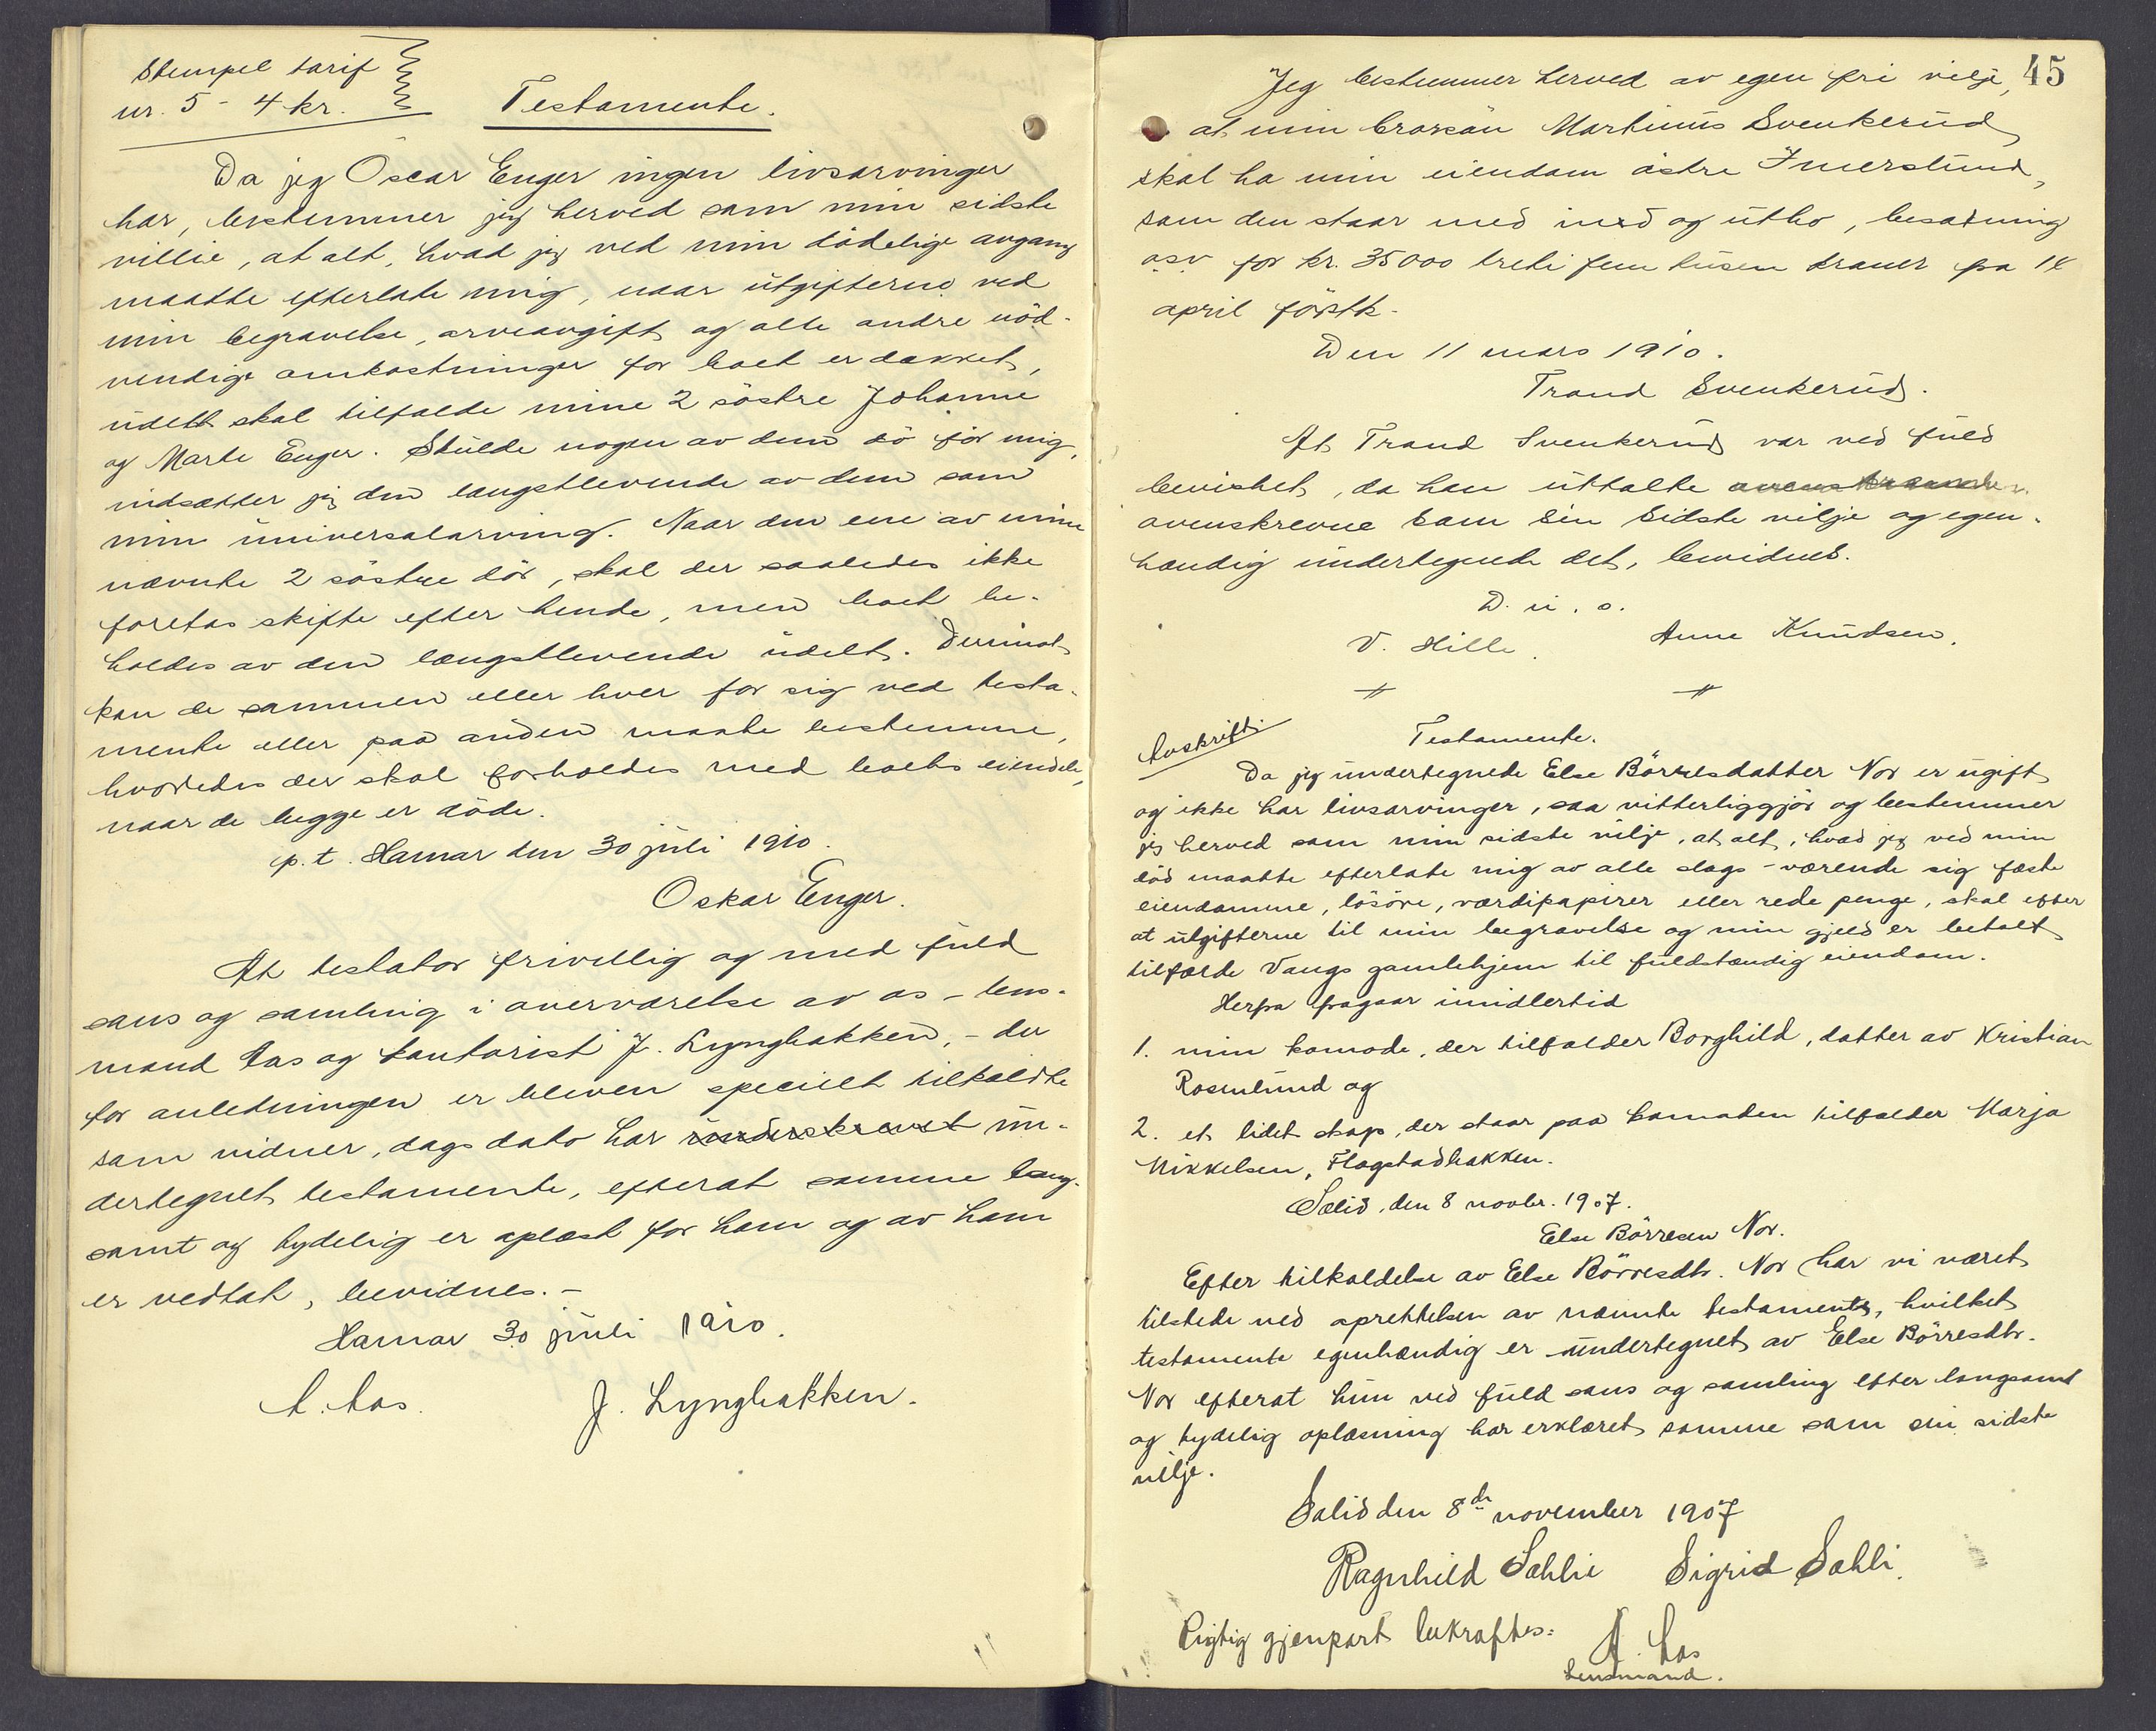 Stempel tarif
nr. 5 - 4 kr.
Testamente.
Da jeg Oscar Enger ingen livsarvinger
har, bestemmer jeg herved som min sidste
villie, at alt, hvad jeg ved min dödelige avgang
maatte efterlate mig, naar utgifterne ved
min begravelse, arveavgift og alle andre nöd-
vendige omkostninger for boet er dækket,
udelt skal tilfalde mine 2 söstre Johanne
og Marte Enger. Skulde nogen av dem dö för mig,
indsætter jeg den længstlevende av dem som
min universalarving. Naar den ene av mine
nævnte 2 söstre dör, skal der saaledes ikke
foretas skifte efter hende, men boet be-
holdes av den længstlevende udelt. Derimot
kan de sammen eller hver for sig ved testa-
mente eller paa anden maate bestemme,
hvorledes der skal forholdes med boets eiendele,
naar de begge er döde.
p. t. Hamar den 30 juli 1910.
Oskar Enger.
At testator frivillig og med fuld
sans og samling i overværelse av os - lens-
mand Aas og kontorist J. Lyngbakken, - der
for anledningen er bleven specielt tilkaldte
som vidner, dags dato har underskrevet un-
dertegnet testamente, efterat samme lang-
samt og tydelig er oplæst for ham og av ham
er vedtat, bevidnes. -
Hamar 30 juli 1910.
A. Aas. J. Lyngbakken.
45
Jeg bestemmer herved av egen fri vilje,
at min brorsön Martinus Svenkerud
skal ha min eiendom östre Imerslund,
som den staar med ind og utbo, besætning
osv for kr. 35000 treti fem tusen kroner fra 14
april förstk.
Den 11 mars 1910.
Trond Svenkerud.
At Trond Svenkerud var ved fuld
bevisthet, da han uttalte
ovenskrevne som sin sidste vilje og egen-
hændig undertegnede det, bevidnes.
D. u. s.
V. Hille. Anne Knudsen.
Avskrift:
Testamente.
Da jeg undertegnede Else Börresdatter Nor er ugift
og ikke har livsarvinger, saa vitterliggjör og bestemmer
jeg herved som min sidste vilje, at alt, hvad jeg ved min
död maatte efterlate mig av alle slags - værende sig faste
eiendomme, lösöre, værdipapirer eller rede penge, skal efter
at utgifterne til min begravelse og min gjeld er betalt
tilfalde Vangs gamlehjem til fuldstændig eiendom.
Herfra fragaar imidlertid
1. min komode, der tilfalder Borghild, datter av Kristian
Rosenlund og
2. et lidet skap, der staar paa komoden tilfalder Marja
Mikkelsen, Flagstadbakken.
Sælid, den 8 novbr. 1907.
Else Börresen Nor.
Efter tilkaldelse av Else Börresdtr. Nor har vi været
tilstede ved oprettelsen av nævnte testamente, hvilket
testamente egenhændig er undertegnet av Else Börresdtr.
Nor efterat hun ved fuld sans og samling efter langsomt
og tydelig oplæsning har erklæret samme som sin sidste
vilje.
Salid den 8de november 1907
Ragnhild Sahlie Sigrid Sahli.
Rigtig gjenpart bekræftes:
A. Aas
Lensmand.